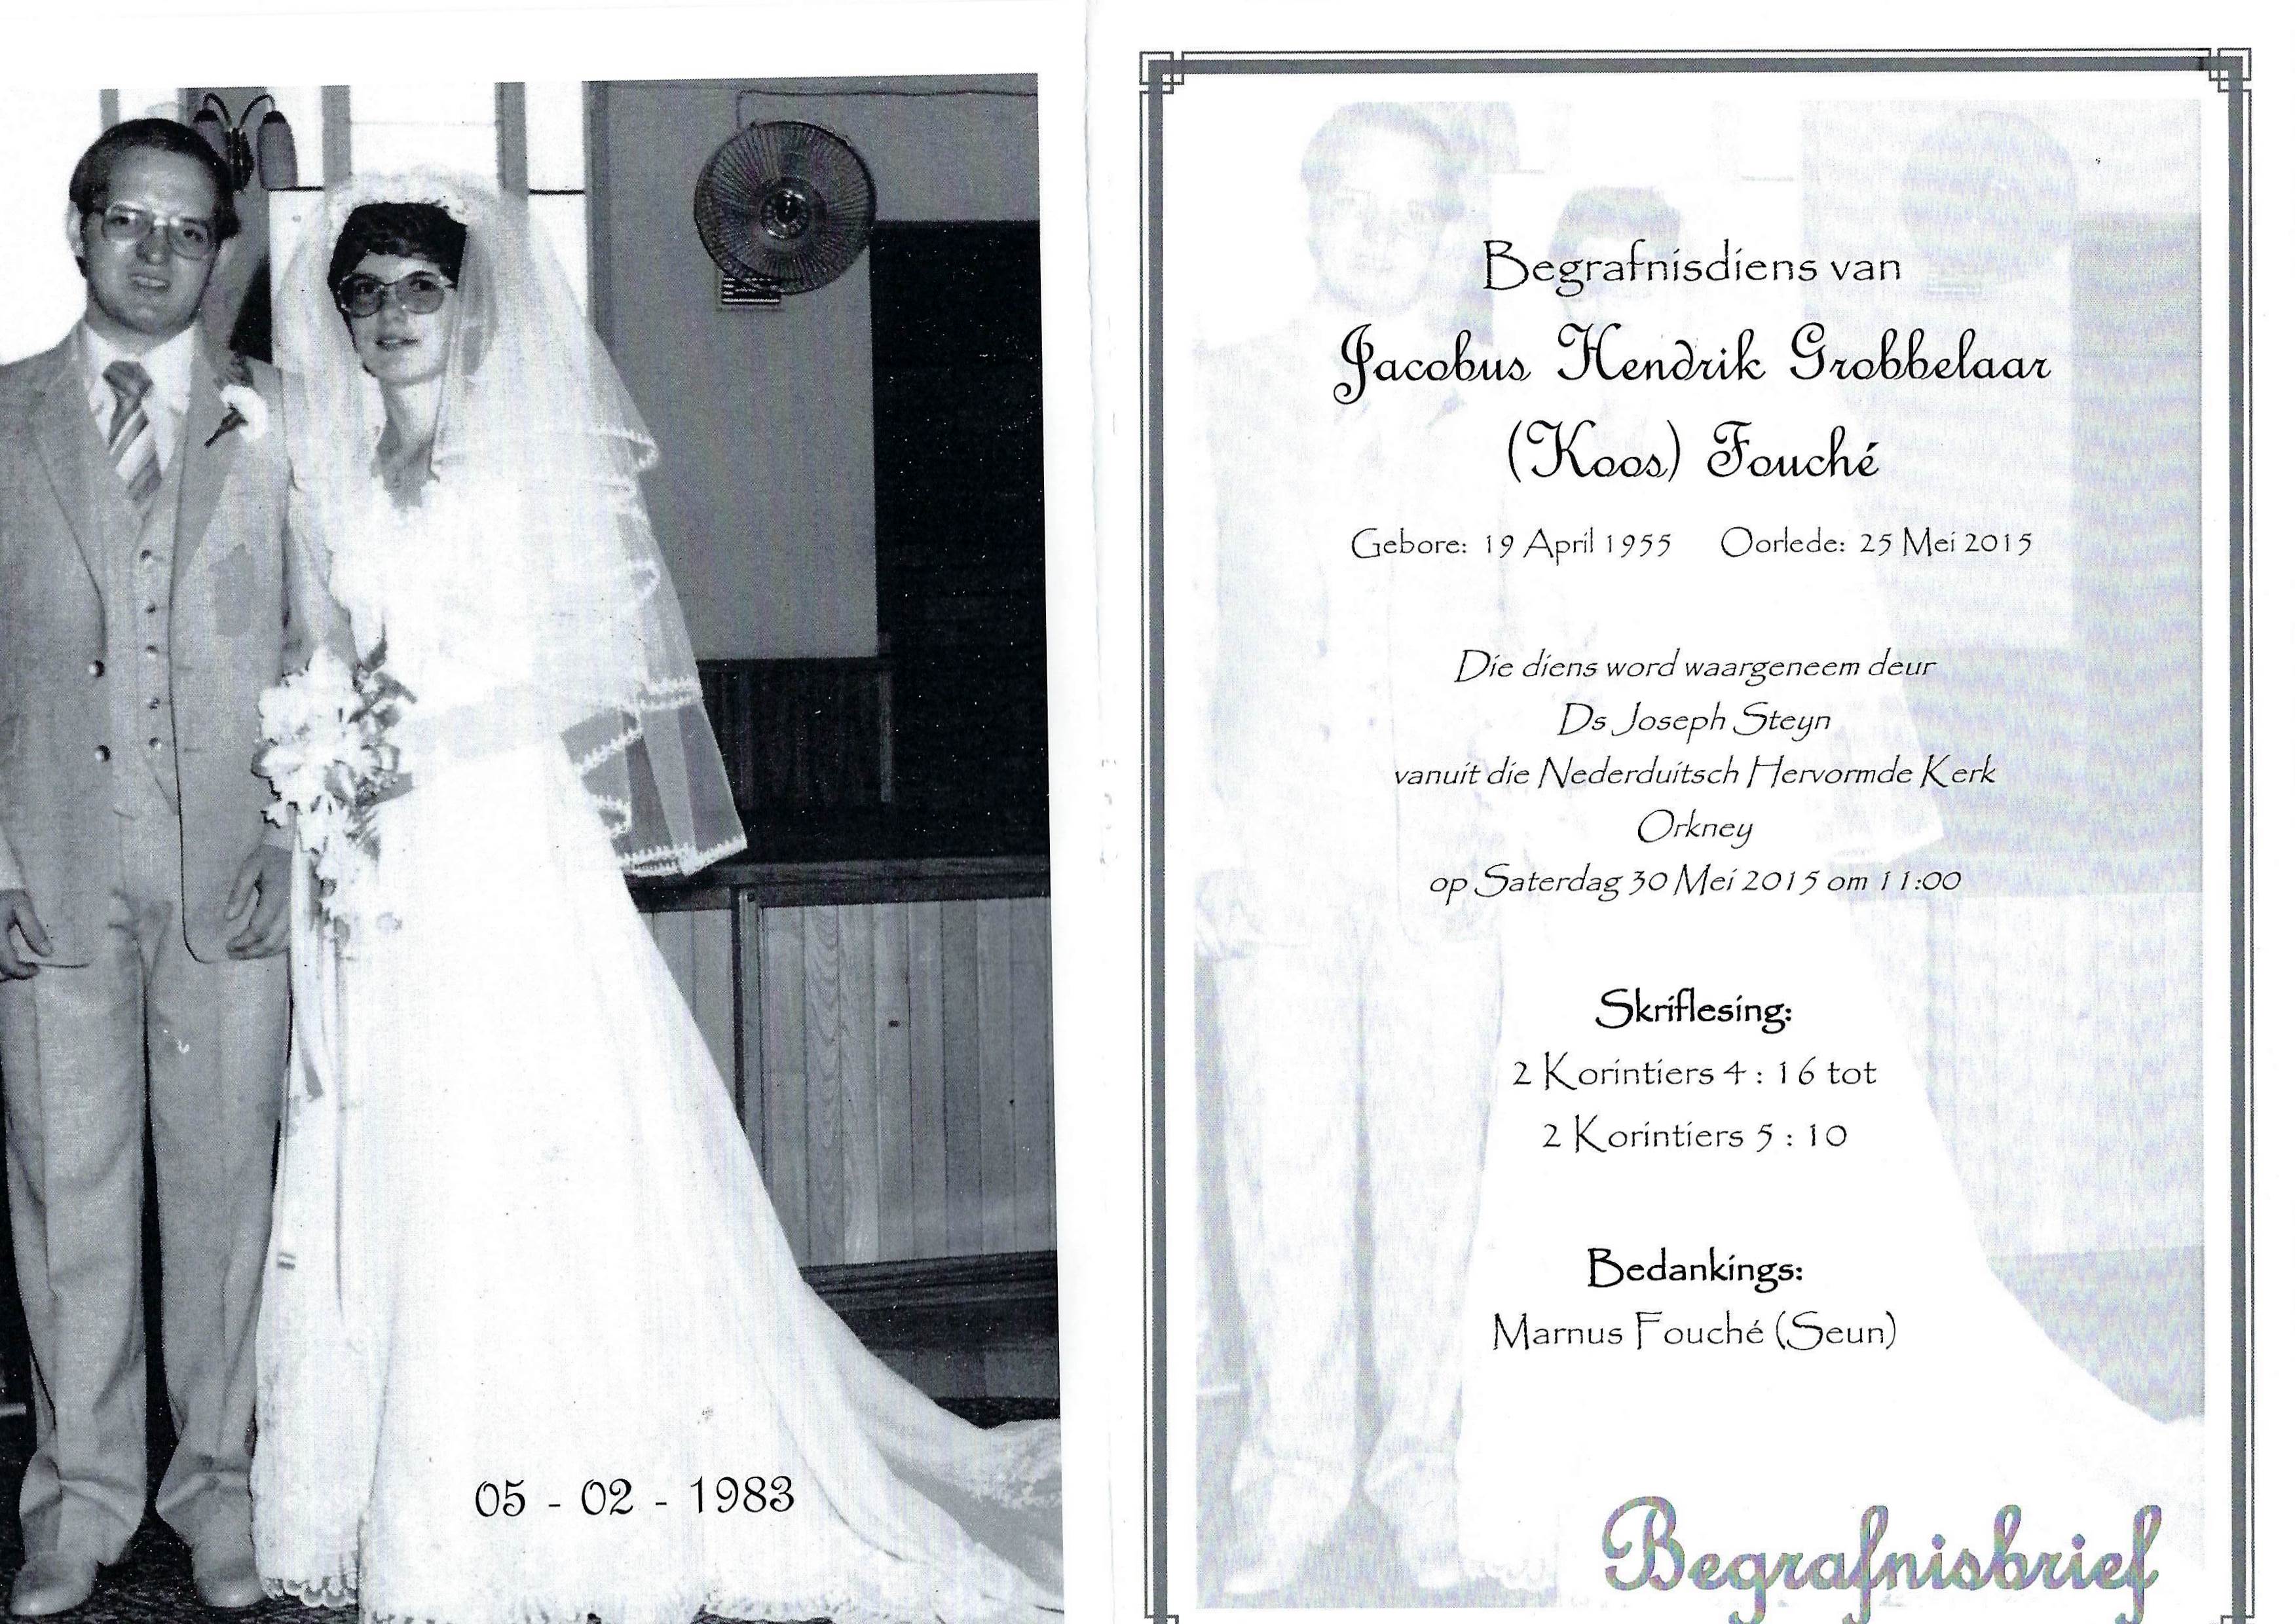 05 - 02 - 1983
Begrafnisdiens van
Jacobus Hendrik Grobbelaar
(Koos) Fouché
Gebore: 19 April 1955 Oorlede: 25 Mei 2015
Die diens word waargeneem deur
Ds Joseph Steyn
vanuit die Nederduitsch Hervormde Kerk
Orkney
op Saterdag 30 Mei 2015 om 11:00
Skriflesing:
2 Korintiers 4 : 16 tot
2 Korintiers 5 : 10
Bedankings:
Marnus Fouché (Seun)
Begrafnisbrief